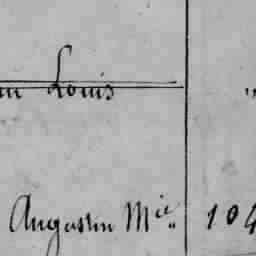 Louis
Augustin Mie 104